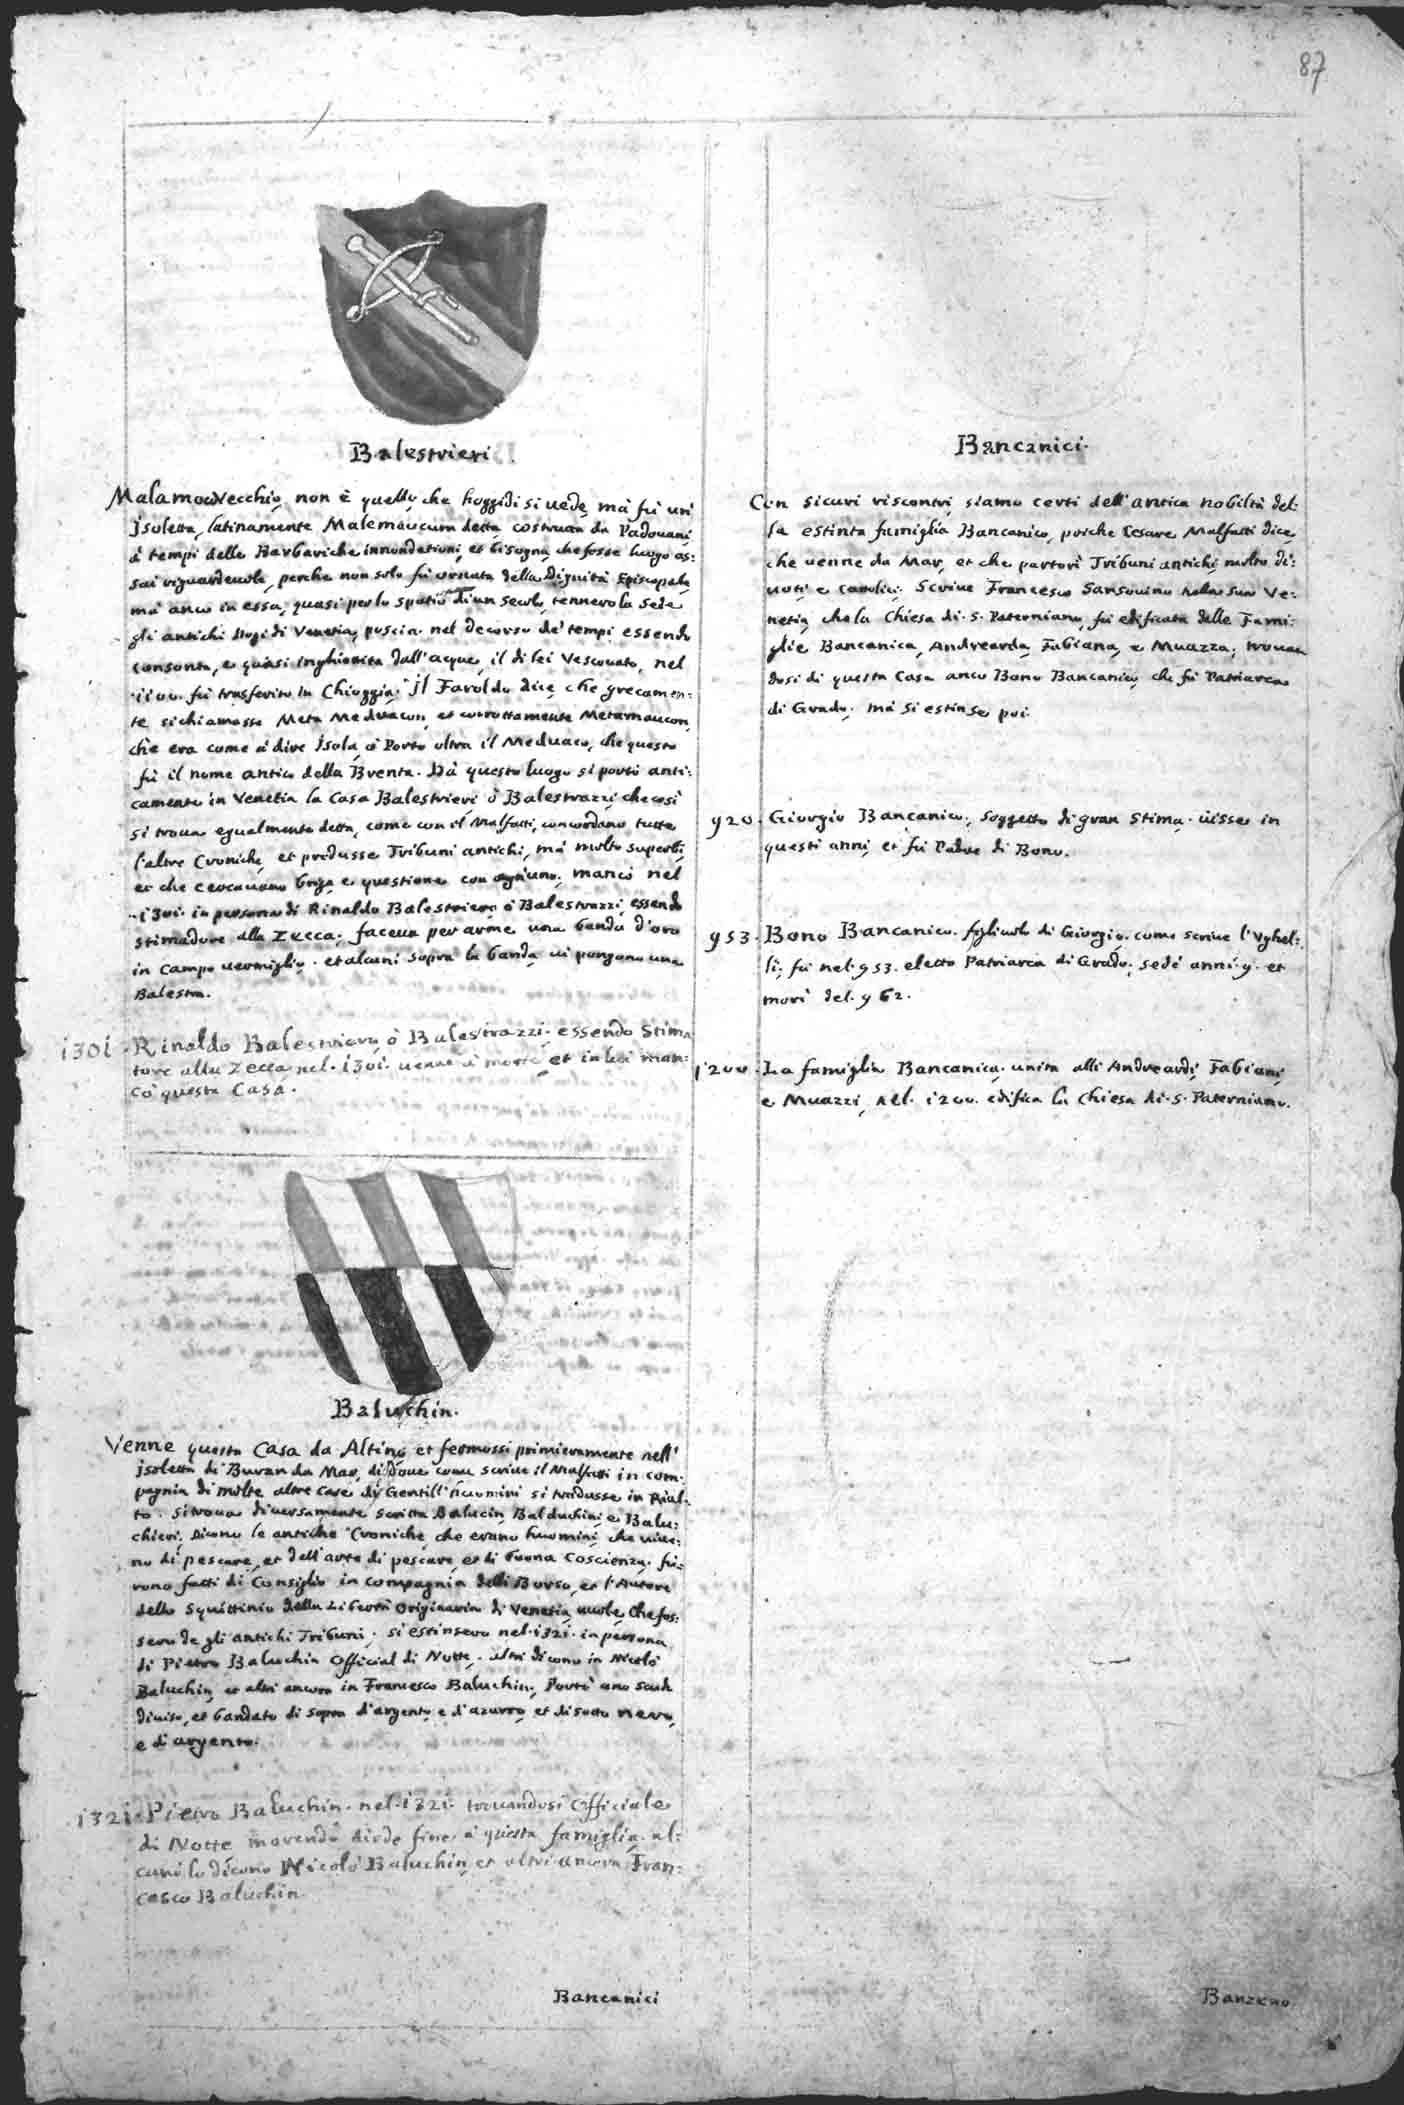 87
Balestrieri.
Malamocco Vecchio, non è quello, che hoggidi si uede, mà fù un'
jsoletta, latinamente Malemaucum detta, costrutta da Padouani,
à tempi delle Barbariche innondationi, et bisogna, che fosse luogo as:
sai riguardeuole, perche non solo fù ornata della Dignità Episcopale,
mà anco in essa, quasi per lo spatio di un secolo, tennero la sede
gli antichi Dogi di Venetia, poscia nel decorso de' tempi essendo
consonta, e quasi inghiottita dall'acque, il di lei Vescouato, nel
·1100· fù trasferito in Chioggia. jl Faroldo dice, che grecamen:
te si chiamasse Meta Meduacon, et corrottamente Metamaucon,
che era come à dire jsola, ò Porto oltra il Meduaco, che questo
fù il nome antico della Brenta. Da questo luogo si portò anti:
camente in Venetia la Casa Balestrieri, ò Balestrazzi, che così
si troua egualmente detta, come con il Malfatti, concordano tutte
l'altre Croniche, et produsse Tribuni antichi, mà molto superbi,
et che cercauano briga, e questione con ogn'uno, mancò nel
·1301· in persona di Rinaldo Balestriero, ò Balestrazzi, essendo
stimadore alla Zecca, faceua per arme una banda d'oro
in campo uermiglio· et alcuni sopra la banda, ui pongono una
Balestra.
1301· Rinaldo Balestriero, ò Balestrazzi, essendo Stima
tore alla Zecca nel· 1301· uenne à morte, et in lui man:
cò questa Casa·
Baluchin·
Venne questa Casa da Altino, et fermossi primieramente nell'
jsoletta di Buran da Mar, di doue come scriue il Malfatti in com:
pagnia di molte altre Case di Gentill'huomini si tradusse in Rial:
to· si troua diuersamente scritta Balucin, Balduchini, e Balu:
chieri. Dicono le antiche Croniche, che erano huomini, che uiue:
no di pescare, et dell'arte di pescare, et di buona Coscienza· fu:
rono fatti di Consiglio in compagnia delli Borso, et l'Autore
dello Squittinio della Libertà Originaria di Venetia, uuole, che fos:
sero de gli antichi Tribuni· si estinsero nel·1321· in persona
di Pietro Baluchin Official di Notte· altri dicono in Nicolò
Baluchin, et altri ancora in Francesco Baluchin, Portò uno scudo
diuiso, et bandato di sopra d'argento, e d'azurro, et di sotto nero,
e di argento·
1321· Pietro Baluchin· nel·1321· trouandosi Officiale
di Notte morendo diede fine à questa famiglia· al:
cuni lo dicono Nicolò Baluchin, et altri ancora Fran:
cesco Baluchin
Bancanici
Bancanici·
Con sicuri riscontri, siamo certi dell'antica nobiltà del:
la estinta famiglia Bancanico, poiche Cesare Malfatti dice,
che uenne da Mar, et che partorì Tribuni antichi, molto di:
uoti, e Catolici. Scriue Francesco Sansouino nella sua Ve:
netia, che la Chiesa di·S·Paterniano, fù edificata dalle Fami:
glie Bancanica, Andrearda, Fabiana, e Muazza, trouan
dosi di questa Casa anco Bono Bancanico, che fù Patriarca
di Grado, mà si estinse poi·
920· Giorgio Bancanico, soggetto di gran stima· uisse in
questi anni, et fù Padre di Bono·
953· Bono Bancanico· figliuolo di Giorgio· come scriue l'Vghel:
li, fù nel·953· eletto Patriarca di Grado, sedè anni·9· et
morì del·962·
1200· La famiglia Bancanica, unita alli Andreardi, Fabiani,
e Muazzi, nel· 1200· edifica la Chiesa di·S·Paterniano.
Banzeno